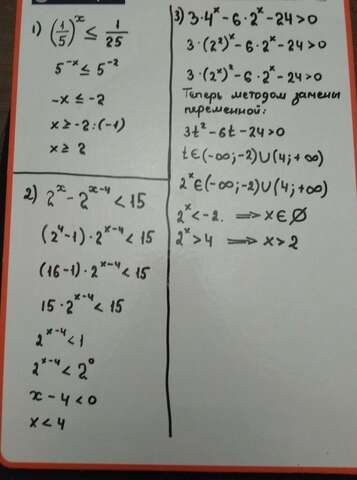 1) (1/5)^x ≤ 1/25
5^-x ≤ 5^-2
-x ≤ -2
x ≥ -2 : (-1)
x ≥ 2
2) 2^x - 2^x-4 < 15
(2^4 - 1) · 2^x-4 < 15
(16 - 1) · 2^x-4 < 15
15 · 2^x-4 < 15
2^x-4 < 1
2^x-4 < 2^0
x - 4 < 0
x < 4
3) 3 · 4^x - 6 · 2^x - 24 > 0
3 · (2^2)^x - 6 · 2^x - 24 > 0
3 · (2^x)^2 - 6 · 2^x - 24 > 0
Теперь методом замены
переменной:
3t^2 - 6t - 24 > 0
t ∈ (-∞; -2) ∪ (4; +∞)
2^x ∈ (-∞; -2) ∪ (4; +∞)
2^x < -2. ⟹ x ∈ ∅
2^x > 4 ⟹ x > 2